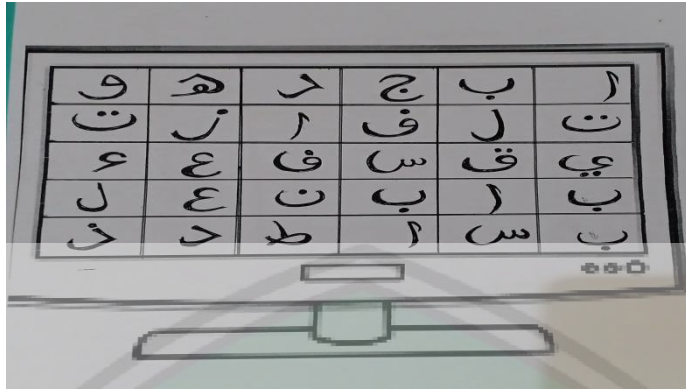 ر ب ج د ه و
ت ل ف ر ز ت
ي ق س ف ع ء
ب ر ب ن ع ل
ب س ر ط د خ